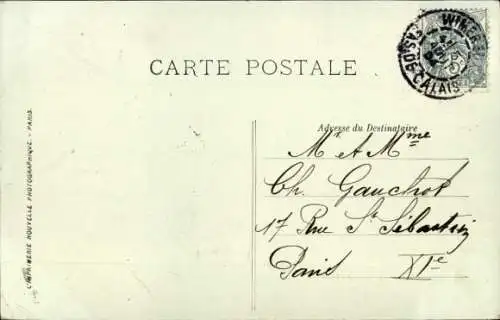 CARTE POSTALE
PAS-DE-CALAIS
Adresse du Destinataire
Mr et Mme
Ch. Gauchot
17 Rue St Sébastien
Paris XIe
IMPRIMERIE NOUVELLE PHOTOGRAPHIQUE - PARIS